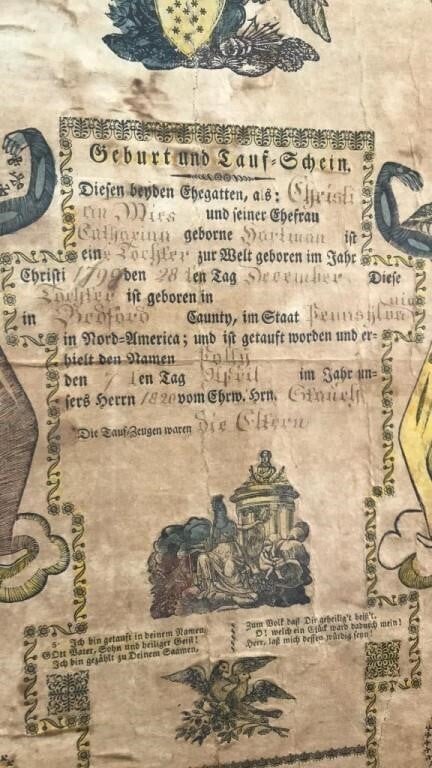 Geburt und Tauf-Schein.
Diesen beyden Ehegatten, als: Christi
an Mies und seiner Ehefrau
Catharina geborne Hartman ist
eine Tochter zur Welt geboren im Jahr
Christi 1799 den 28ten Tag December Diese
Tochter ist geboren in
in Bedford Caunty, im Staat Pennsylvania
in Nord-America; und ist getauft worden und er-
hielt den Namen Polly
den ten Tag April im Jahr un-
sers Herrn 1820 vom Ehrw. Hrn.
Die Tauf-Zeugen waren Die Eltern
5. Ich bin getauft in deinem Namen,
GOtt Vater, Sohn und heiliger Geist!
Ich bin gezählt zu Deinem Saamen,
Zum Volk daß Dir geheilig't heiß't.
O! welch ein Glück ward dadurch mein!
Herr, laß mich dessen würdig seyn!